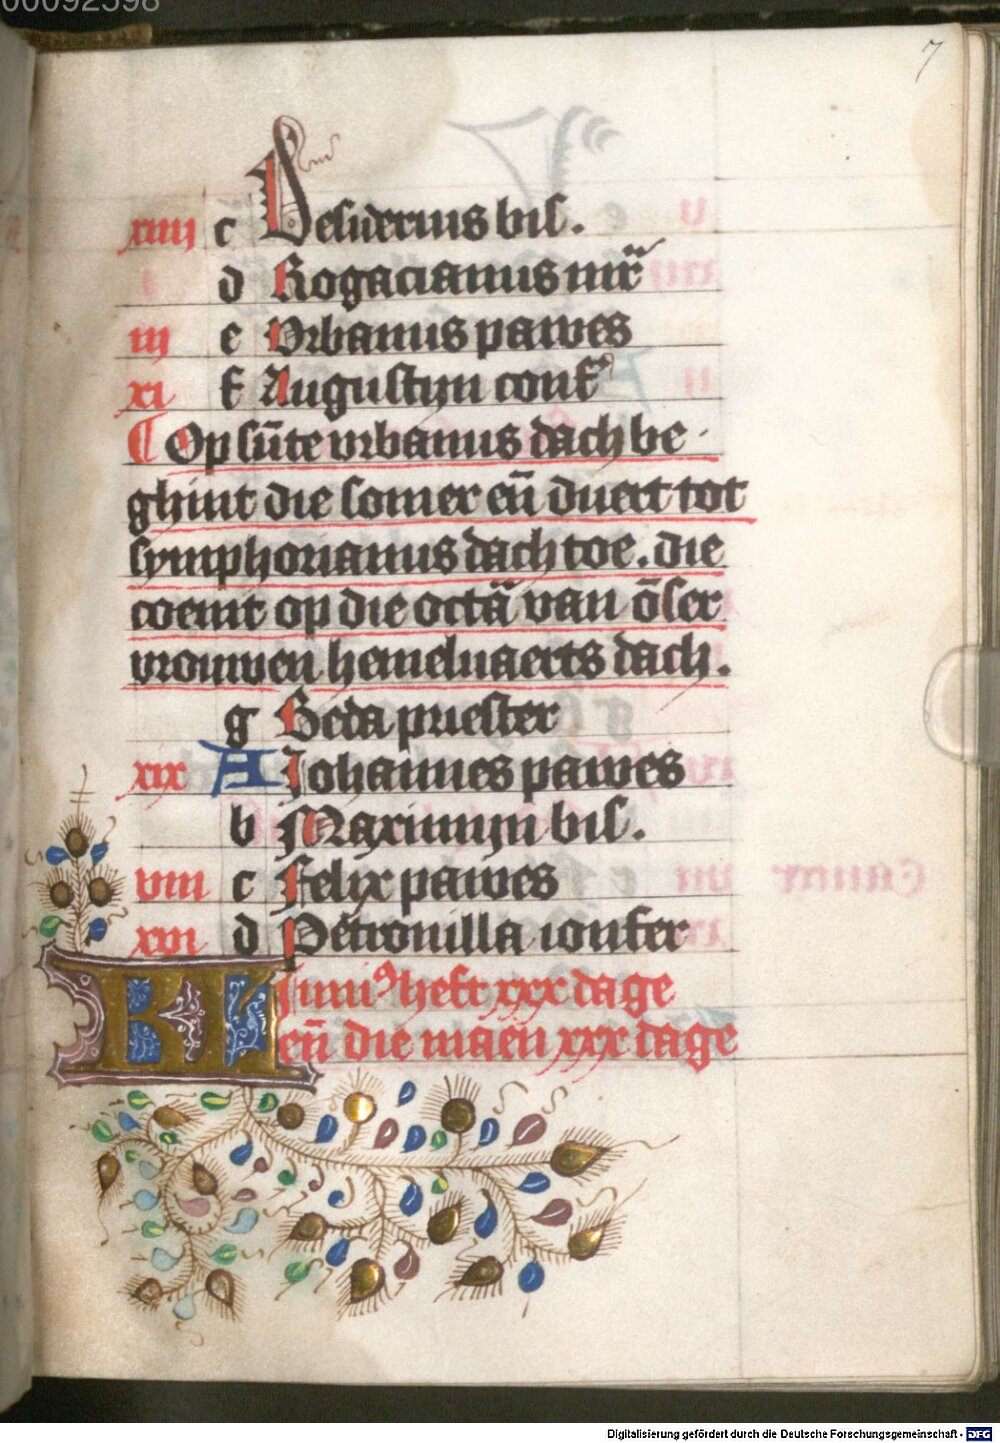 00092598
7
xiiii c Desiderius bis.
i d Rogacianus mr̄
iii e Vrbanus pawes
xi f Augustijn conf̄
Op sūte vrbanus dach be
ghint die somer eñ duert tot
symphorianus dach toe. die
coemt op die octā van ōser
vrouwen hemelvaerts dach.
g Beda priester
xix A Johannes pawes
b Maximijn bis.
viii c Felix pawes
xvi d Petronilla ioufer
KL Juni⁹ heft xxx dage
eñ die maen xxx dage
Digitalisierung gefördert durch die Deutsche Forschungsgemeinschaft - DFG